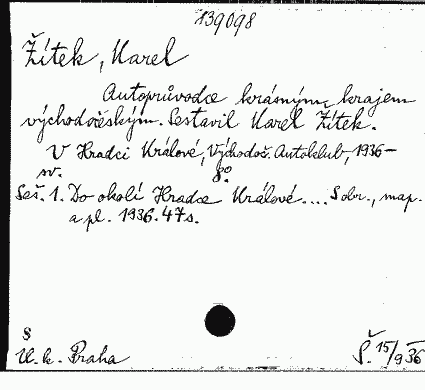 439098
Žítek, Karel
Autoprůvodce krásným krajem
východočeským. Sestavil Karel Žítek.
V Hradci Králové, Východoč. Autoklub, 1936-
sv. 8o.
Seš. 1. Do okolí Hradce Králové .... S obr., map.
a pl. 1936. 47 s.
S
U. k. Praha Š. 15/9 36